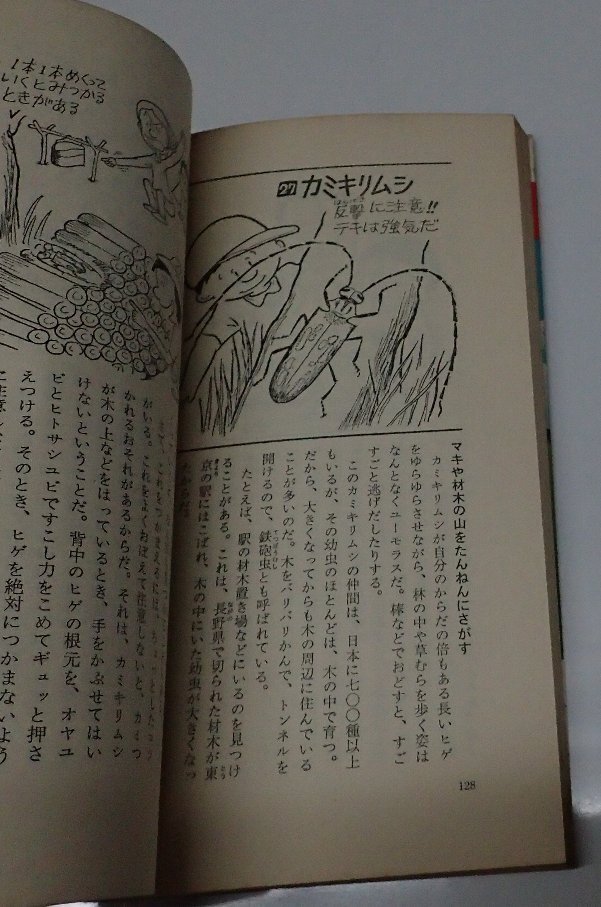 ㉗カミキリムシ
反撃に注意!!
テキは強気だ
マキや材木の山をたんねんにさがす
カミキリムシが自分のからだの倍もある長いヒゲ
をゆらゆらさせながら、林の中や草むらを歩く姿は
なんとなくユーモラスだ。棒などでおどすと、すご
すごと逃げだしたりする。
このカミキリムシの仲間は、日本に七〇〇種以上
もいるが、その幼虫のほとんどは、木の中で育つ。
だから、大きくなってからも木の周辺に住んでいる
ことが多いのだ。木をバリバリかんで、トンネルを
開けるので、鉄砲虫とも呼ばれている。
たとえば、駅の材木置き場などにいるのを見つけ
ることがある。これは、長野県で切られた材木が東
京の駅にはこばれ、木の中にいた幼虫が大きくなっ
たからだ。
128
1本1本めくって
いくとみつかる
ときがある
がいる。これをよくおぼえて注意しないと、カミつ
かれるおそれがあるからだ。それは、カミキリムシ
が木の上などをはっているとき、手をかぶせてはい
けないということだ。背中のヒゲの根元を、オヤユ
ビとヒトサシユビですこし力をこめてギュッと押さ
えつける。そのとき、ヒゲを絶対につかまないよう
に注意し